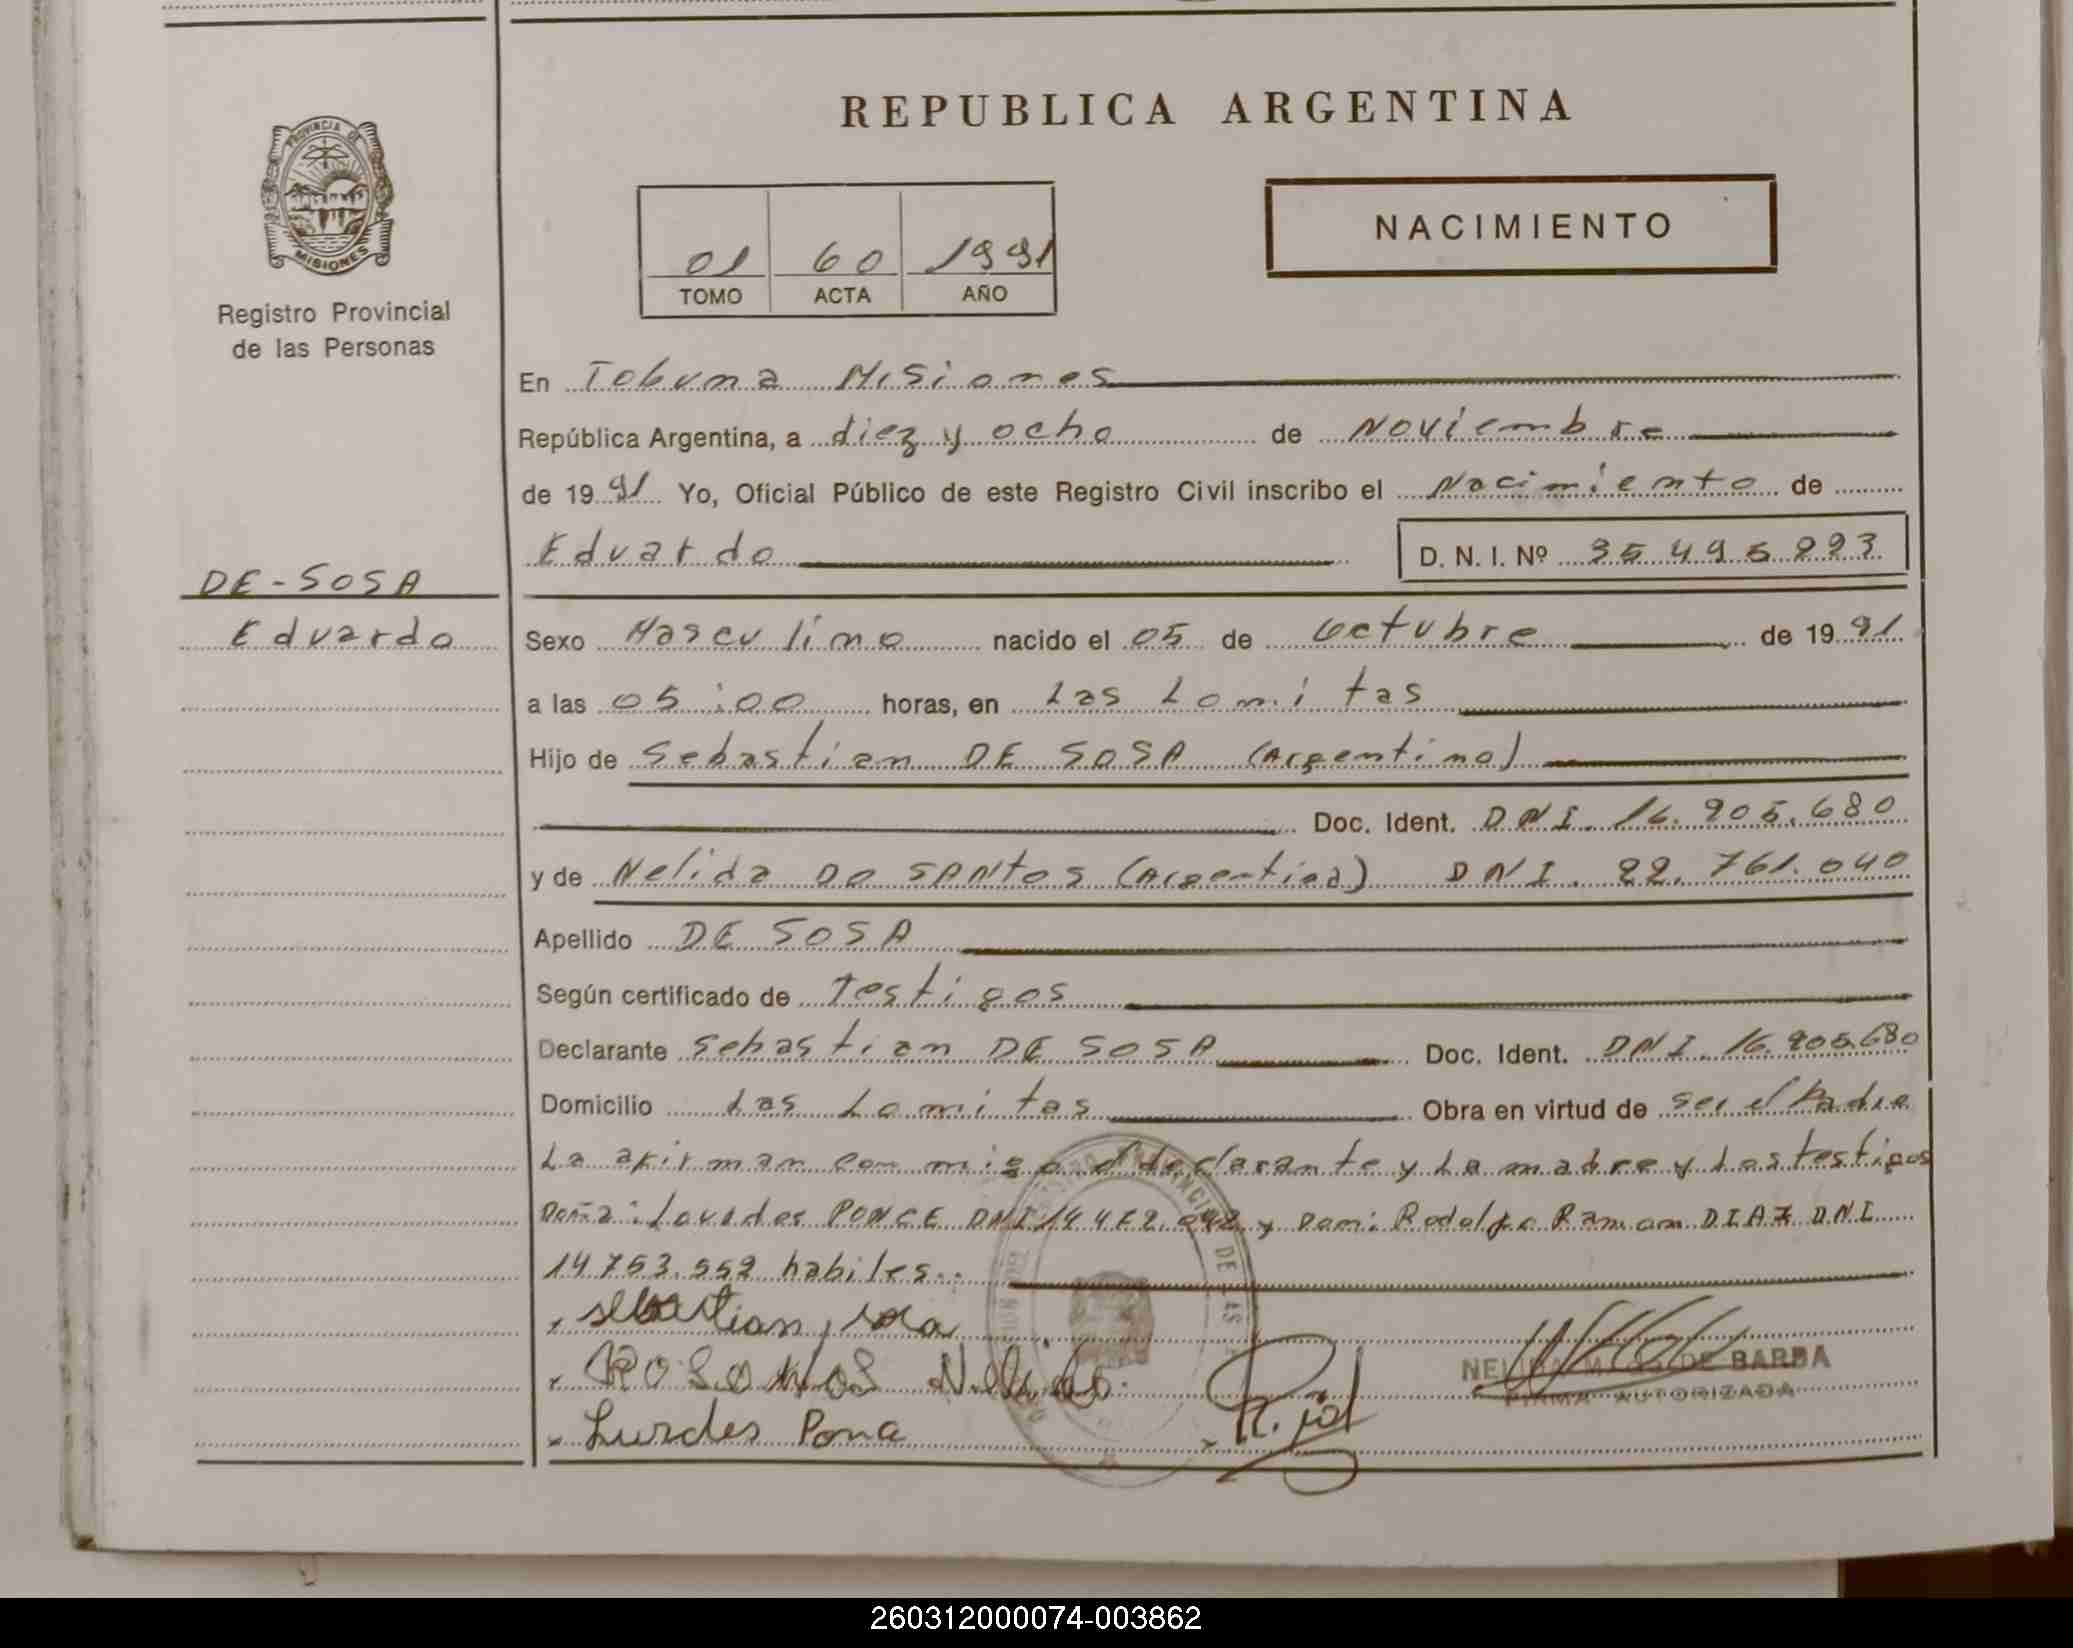 REPUBLICA ARGENTINA
PROVINCIA DE
MISIONES
Registro Provincial
de las Personas
01 60 1991
TOMO ACTA AÑO
NACIMIENTO
En Tobuna Misiones
República Argentina, a diez y ocho de Noviembre
de 1991 Yo, Oficial Público de este Registro Civil inscribo el Nacimiento de
Eduardo D. N. I. Nº 35.495.223
DE-SOSA
Eduardo
Sexo Masculino nacido el 05 de octubre de 1991
a las 05:00 horas, en Las Lomitas
Hijo de Sebastian DE SOSA (Argentino)
Doc. Ident. DNI. 16.905.680
y de Nelida DO SANtos (Argentina) DNI. 22.761.040
Apellido DE SOSA
Según certificado de Testigos
Declarante Sebastian DE SOSA Doc. Ident. DNI. 16.905.680
Domicilio Las Lomitas Obra en virtud de ser el Padre
La afirman conmigo el declarante y la madre y los testigos
Doña: Lourdes PONCE DNI y Don: Rodolfo Ramon DIAZ DNI
14.753.552 habiles..
sebastian, sosa
Lurdes Ponce
NELIDA DE BARBA
FIRMA AUTORIZADA
260312000074-003862